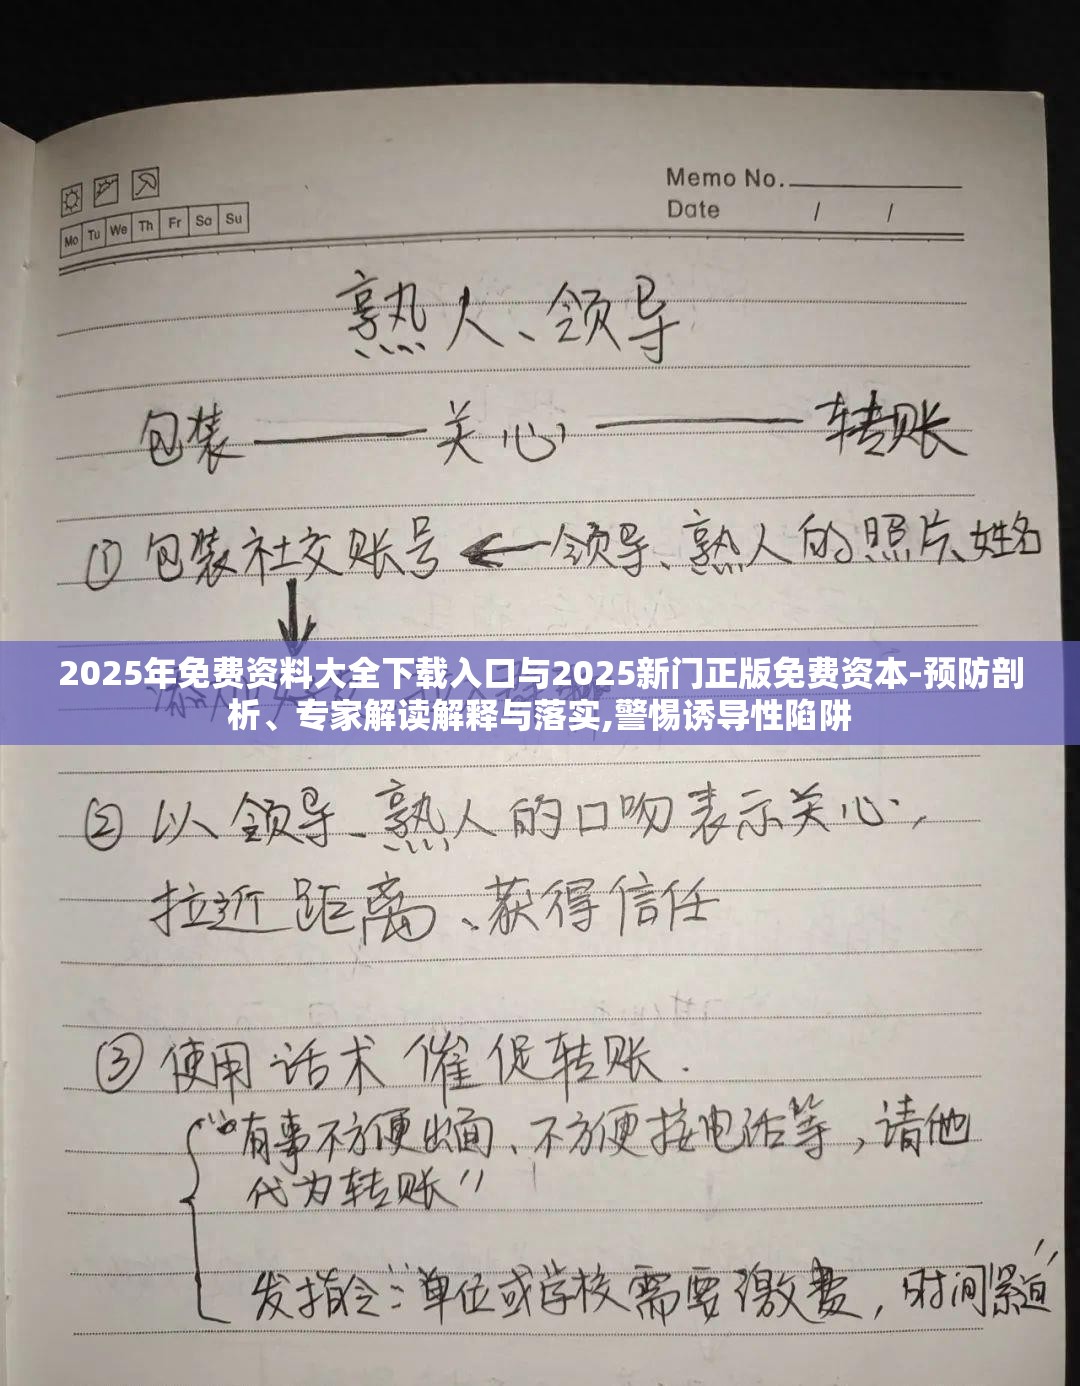 Memo No.
Date / /
Mo Tu We Th Fr Sa Su
熟人、领导
包装——关心——转账
①包装社交账号←领导、熟人的照片、姓名
2025年免费资料大全下载入口与2025新门正版免费资本-预防剖
析、专家解读解释与落实,警惕诱导性陷阱
②以领导、熟人的口吻表示关心,
拉近距离、获得信任
③使用话术催促转账.
“有事不方便出面、不方便接电话等,请他
代为转账”
发指令:“单位或学校需要缴费,时间紧迫”